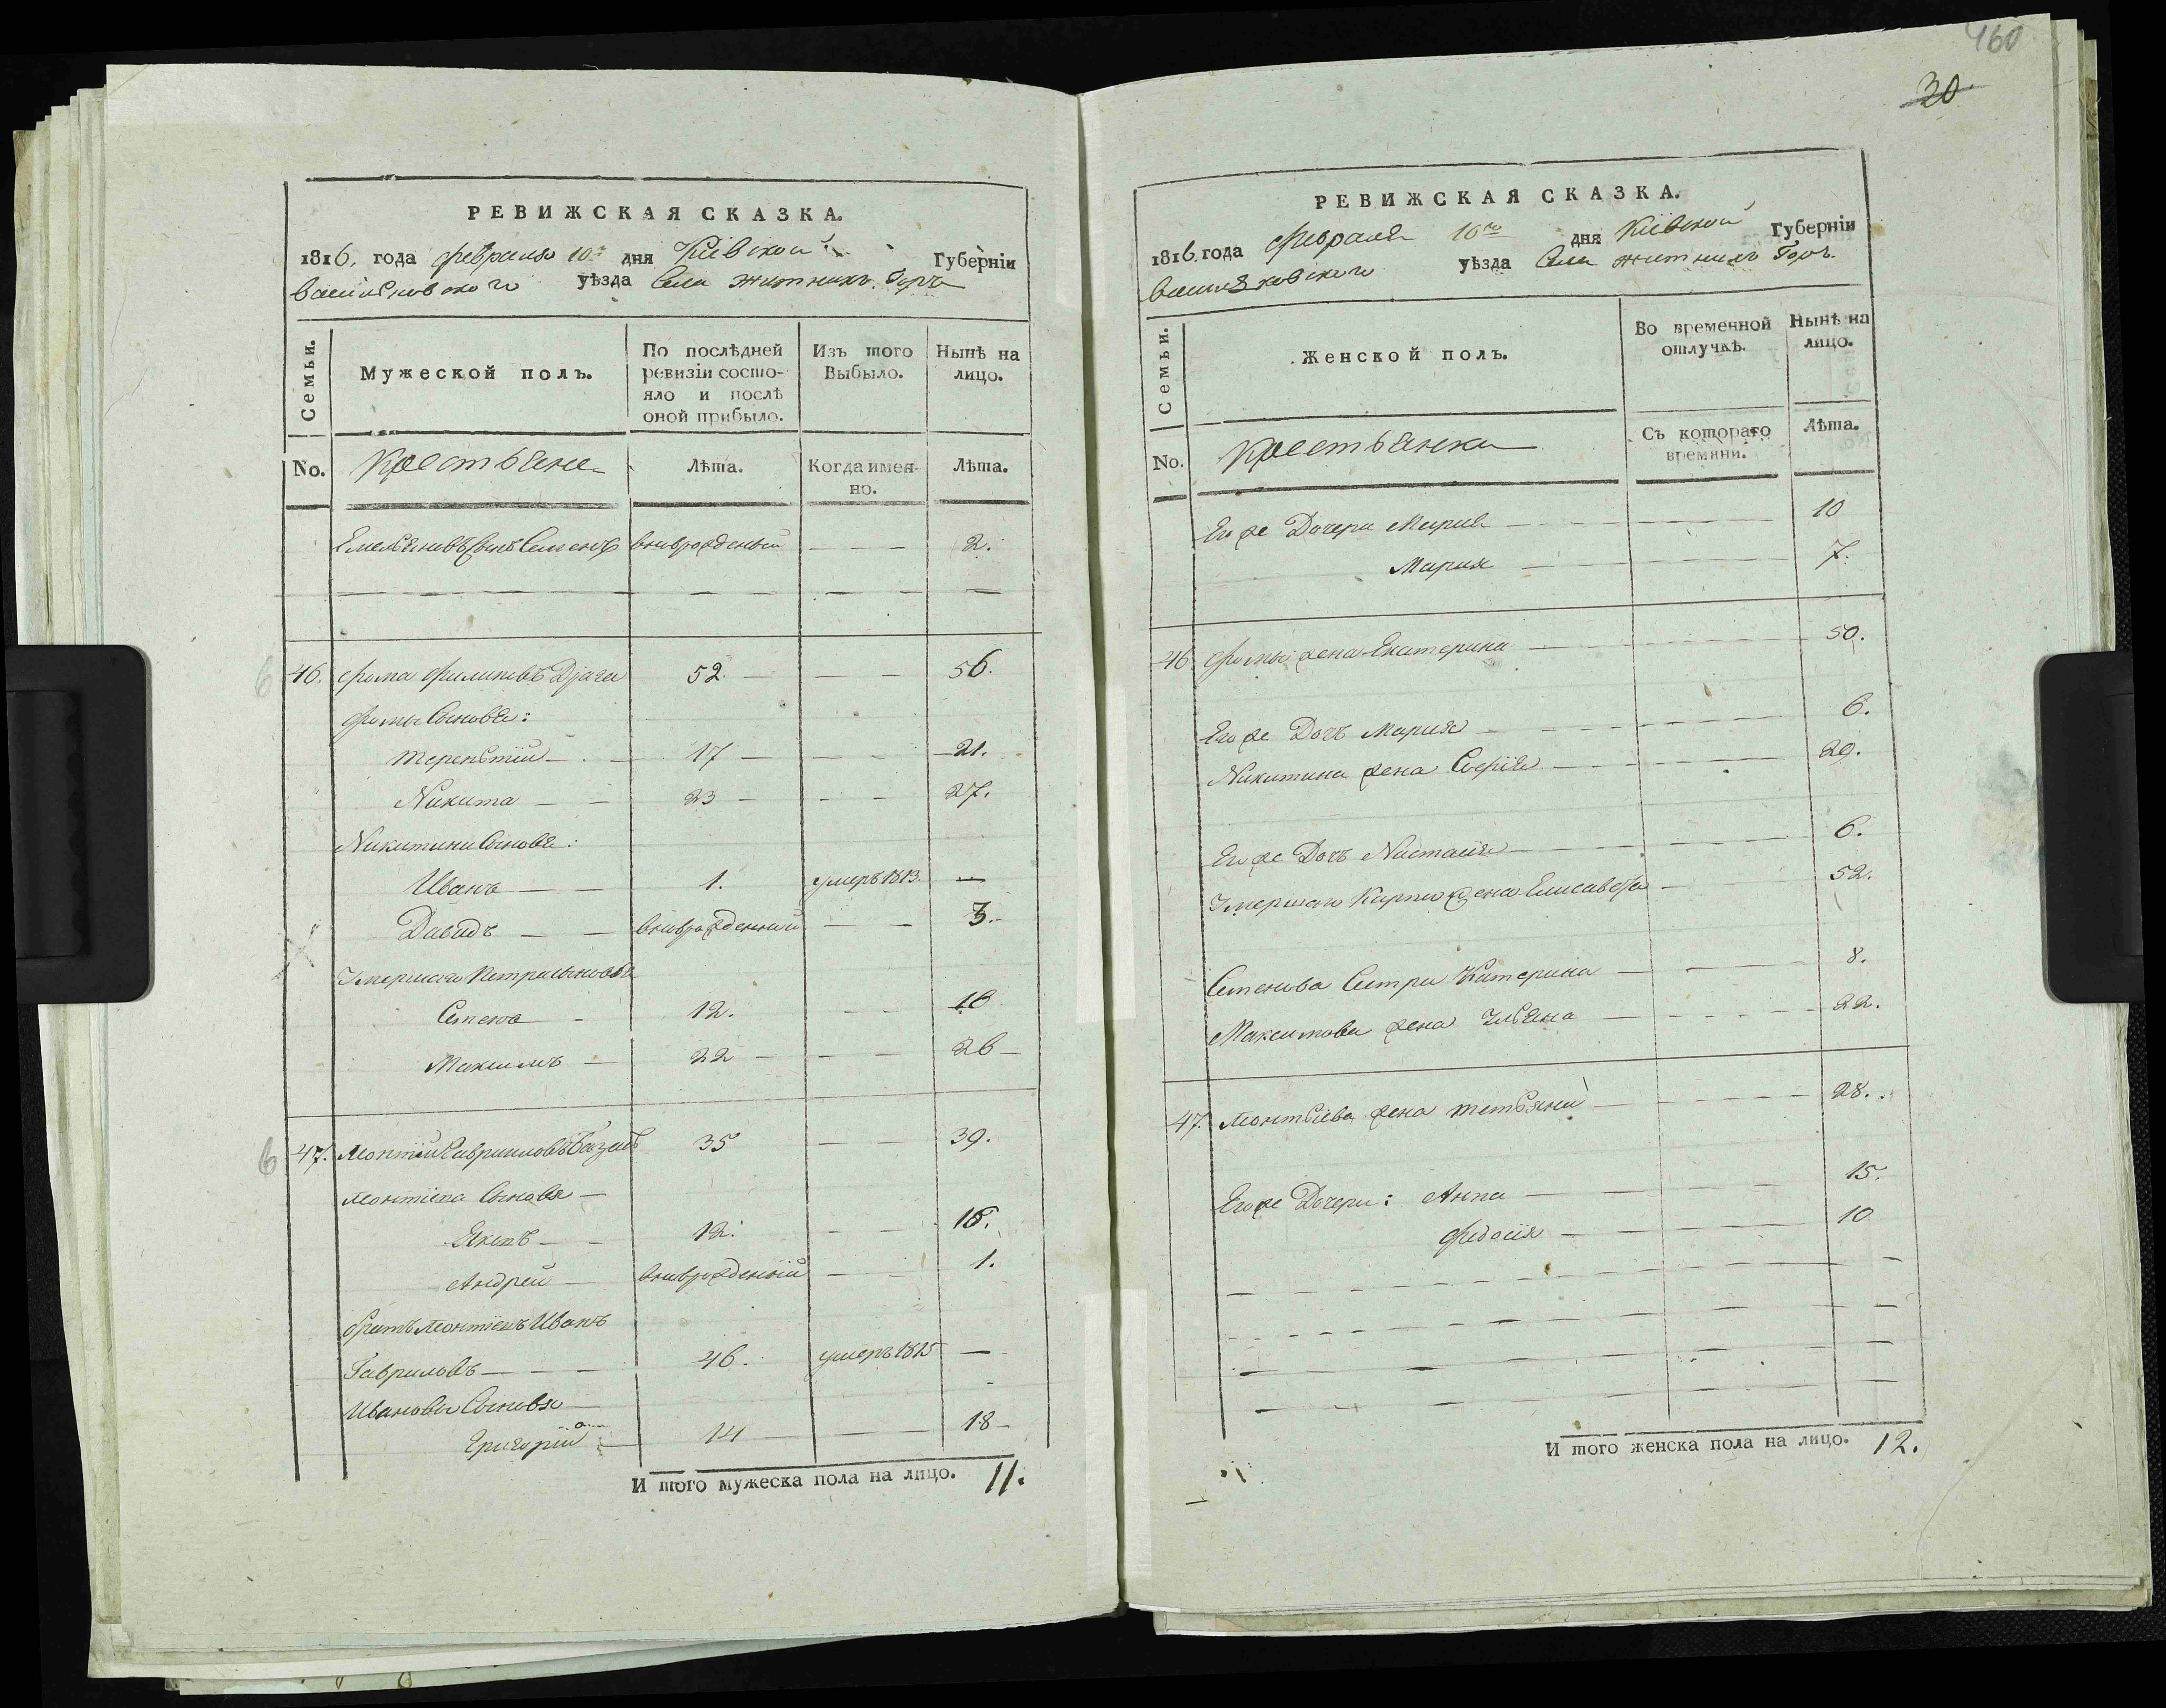 460
30
РЕВИЖСКАЯ СКАЗКА.
1816, года февраля 10го дня Кіевской Губерніи
Васильковского уѣзда Села Житнихъ Горъ
Семьи.
Мужеской полъ.
По послѣдней ревизіи состояло и послѣ оной прибыло.
Изъ того Выбыло.
Нынѣ на лицо.
No. Крестьяне Лѣта. Когда именно. Лѣта.
Емельяновъ Сынъ Семенъ вновьрожденый — — — 2.
46. Фома Филиповъ 52. — — — 56.
Фомы Сыновья:
Терентій — 17 — — — 21.
Никита — — 23 — — — 27.
Никитини Сыновья:
Иванъ — — 1. умеръ 1813. —
Давидъ — — вновьрожденный — — 3.
Умершаго Петра сыновья
Семенъ — 12. — — 16
Максимъ — 22 — — — 26 —
47. Монтій Гавриловъ 35 — — 39.
Монтіева Сыновья —
Якопъ — — 12. — — 16.
Андрей — вновьрожденый — — 1.
братъ Монтіевъ Иванъ
Гавриловъ — — — 46. умеръ 1815 —
Иванова Сыновья —
Григорій — 14 — — — 18 —
И того мужеска пола на лицо. 11.
РЕВИЖСКАЯ СКАЗКА.
1816. года февраля 10го дня Кіевской Губерніи
Васильковского уѣзда Села Житнихъ Горъ.
Семьи.
Женской полъ.
Во временной отлучкѣ.
Нынѣ на лицо.
No. Крестьянки Съ котораго времяни. Лѣта.
Его же Дочери Мария — — — — 10
Мария — — — — 7.
46 Фомы жена Екатерина — — — — 50.
Его же Дочь Мария — — — — 6.
Никитина жена Софія — — — — 29.
Его же Дочь Настасія — — — — 6.
Умершаго Карпа жена Елисавефа — — — 52.
Семенова Сестра Катерина — — — 8.
Максимова жена Ульяна — — — — 22.
47. Монтіева жена Тетьяна — — — — 28.
Его же Дочери: Анна — — — — 15.
Федосія — — — — 10
И того женска пола на лицо. 12.